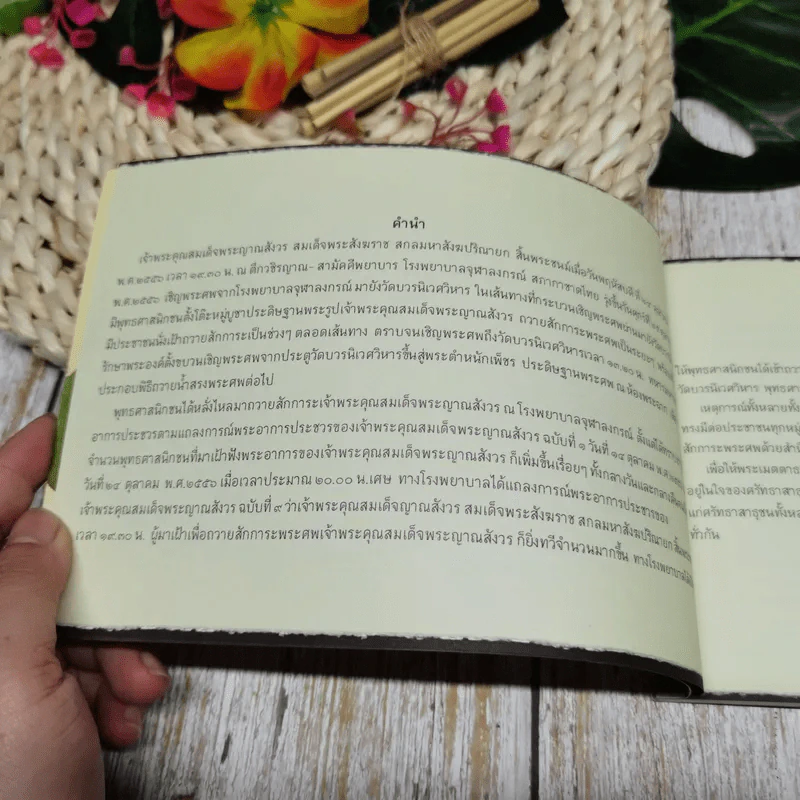 คำนำ
เจ้าพระคุณสมเด็จพระญาณสังวร สมเด็จพระสังฆราช สกลมหาสังฆปริณายก สิ้นพระชนม์เมื่อวันพฤหัสบดี ที่ ๒๔
พ.ศ.๒๕๕๖ เวลา ๑๙.๓๐ น. ณ ตึกวชิรญาณ- สามัคคีพยาบาร โรงพยาบาลจุฬาลงกรณ์ สภากาชาดไทย รุ่งขึ้นวันศุกร์ที่
พ.ศ.๒๕๕๖ เชิญพระศพจากโรงพยาบาลจุฬาลงกรณ์ มายังวัดบวรนิเวศวิหาร ในเส้นทางที่กระบวนเชิญพระศพผ่านมายังวัด
มีพุทธศาสนิกชนตั้งโต๊ะหมู่บูชาประดิษฐานพระรูปเจ้าพระคุณสมเด็จพระญาณสังวร ถวายสักการะพระศพเป็นระยะๆ
มีประชาชนนั่งเฝ้าถวายสักการะเป็นช่วงๆ ตลอดเส้นทาง ตราบจนเชิญพระศพถึงวัดบวรนิเวศวิหารเวลา ๑๓.๑๐ น.
รักษาพระองค์ตั้งขบวนเชิญพระศพจากประตูวัดบวรนิเวศวิหารขึ้นสู่พระตำหนักเพ็ชร ประดิษฐานพระศพ ณ ห้องพระฉาก
ประกอบพิธีถวายน้ำสรงพระศพต่อไป
พุทธศาสนิกชนได้หลั่งไหลมาถวายสักการะเจ้าพระคุณสมเด็จพระญาณสังวร ณ โรงพยาบาลจุฬาลงกรณ์ ตั้งแต่ได้
อาการประชวรตามแถลงการณ์พระอาการประชวรของเจ้าพระคุณสมเด็จพระญาณสังวร ฉบับที่ ๑ วันที่ ๑๔ ตุลาคม
จำนวนพุทธศาสนิกชนที่มาเฝ้าฟังพระอาการของเจ้าพระคุณสมเด็จพระญาณสังวร ก็เพิ่มขึ้นเรื่อยๆ ทั้งกลางวันและกลางคืน
วันที่ ๒๔ ตุลาคม พ.ศ.๒๕๕๖ เมื่อเวลาประมาณ ๒๐.๐๐ น.เศษ ทางโรงพยาบาลได้แถลงการณ์พระอาการประชวรของ
เจ้าพระคุณสมเด็จพระญาณสังวร ฉบับที่ ๙ ว่าเจ้าพระคุณสมเด็จญาณสังวร สมเด็จพระสังฆราช สกลมหาสังฆปริณายก
เวลา ๑๙.๓๐ น. ผู้มาเฝ้าเพื่อถวายสักการะพระศพเจ้าพระคุณสมเด็จพระญาณสังวร ก็ยิ่งทวีจำนวนมากขึ้น ทางโรงพยาบาล
ให้พุทธศาสนิกชนได้เข้าถวาย
วัดบวรนิเวศวิหาร พุทธศา
เหตุการณ์ทั้งหลายทั้ง
ทรงมีต่อประชาชนทุกหมู่
สักการะพระศพด้วยสำนึ
เพื่อให้พระเมตตาธ
อยู่ในใจของศรัทธาสาธุ
แก่ศรัทธาสาธุชนทั้งหล
ทั่วกัน